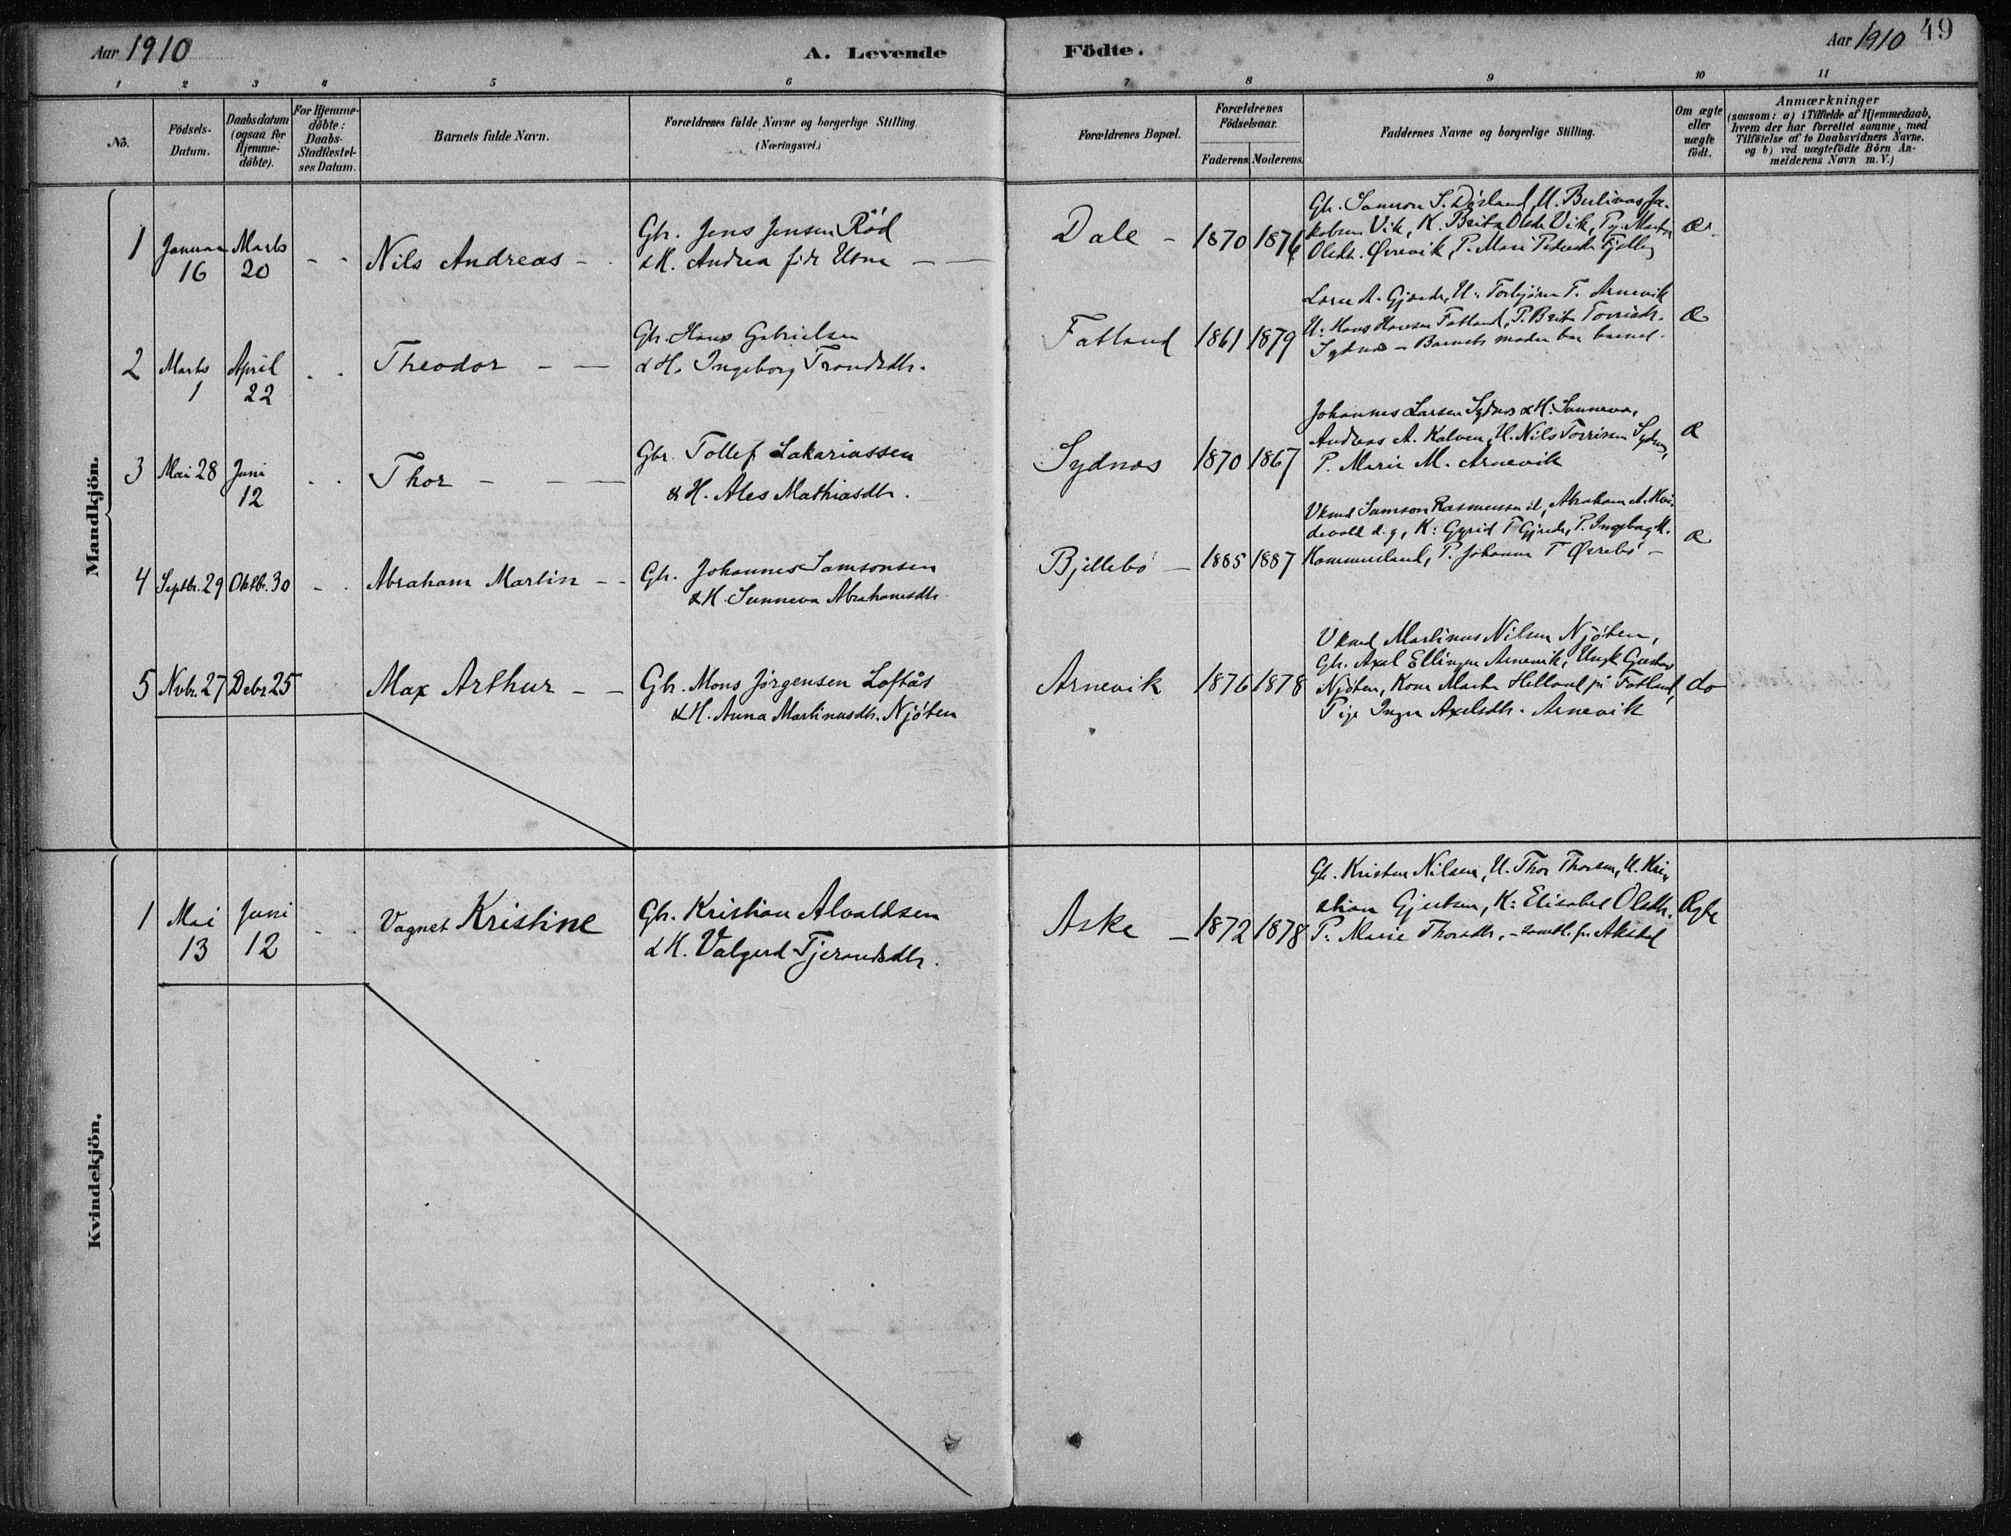 Aar 1910
A. Levende Födte.
Aar 1910 49
1 2 3 4 5 6 7 8 9 10 11
No.
Födsels-Datum.
Daabsdatum (ogsaa for Hjemme-döbte).
For Hjemme-döbte: Daabs-Stadfestel-ses Datum.
Barnets fulde Navn.
Forældrenes fulde Navne og borgerlige Stilling.
(Næringsvei.)
Forældrenes Bopæl.
Forældrenes Födselsaar.
Faderens. Moderens.
Faddernes Navne og borgerlige Stilling.
Om ægte eller uægte födt.
Anmærkninger
(saasom: a) i Tilfælde af Hjemmedaab,
hvem der har forrettet samme, med
Tilföielse af to Daabsvidners Navne.
og b) ved uægtefödte Börn An-
melderens Navn m.V.)
Mandkjön.
1 Januar 16 Marts 20 - - Nils Andreas -
Gbr. Jens Jensen Röd
& H. Andrea
Dale - 1870 1876
Vik, K. Brita Vik,
Øvrevik, P. Mari
2 Marts 1 April 22 - - Theodor - -
Gbr. Hans Gabrielsen
& H. Ingeborg Trondsdtr.
Fatland 1861 1879
U. Torbjörn T. Arnevik
U. Hans Hansen Fatland, P. Brita
Sydnes - Barnets moder bar barnet.
Æ
3 Mai 28 Juni 12 - - Thor - - -
Gbr. Tollef Zakariassen
& H. Ales Mathiasdtr.
Sydnæs 1870 1867
Johannes Larsen Sydnes & H. Sunneva,
Andreas A. Kalven, U. Nils Torrisen Sydnes,
P. Marie M. Arnevik
Æ
4 Septbr. 29 Oktbr. 30 - - Abraham Martin - -
Gbr. Johannes Samsonsen
& H. Sunneva Abrahamsdtr.
Bjellebö - 1885 1887
Samson Rasmussen Abraham A.
P. Ingeborg
P. Johanna T Øvrebö -
Æ
5 Nvbr. 27 Debr 25 Max Arthur - -
Gbr. Mons Jörgensen Loftås
& H. Anna Martinusdtr. Njöten
Arnevik 1876 1878
Martinus Nilsen Njöten,
Gbr. Axel Ellingsen Arnevik,
Njöten, Kone Marta Helland på Fatland,
Pige Inga Axelsdtr. Arnevik
do
Kvindekjön.
1 Mai 13 Juni 12 - - Vagnet Kristine
Gbr. Kristian Alvaldsen
& K. Valgerd Tjerandsdtr.
Aske - 1872 1878
Gbr. Kristen Nilsen, U. Thor Thorsen, U. Kri
stian Gjertsen, K: Elisabet Olsdtr.
P: Marie Thorsdtr.
Ægte